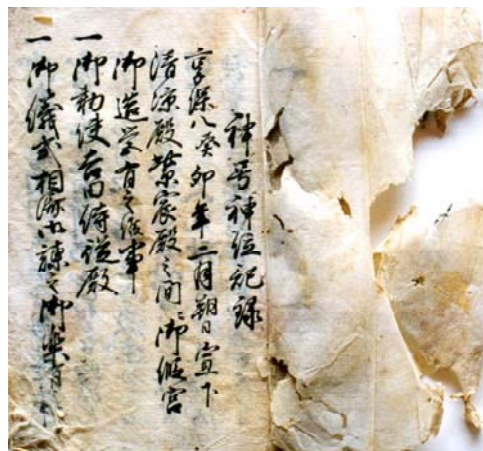 神号神位記録
享保八癸卯年二月朔日宣下
清涼殿紫宸殿之間ニ御假宮
御造営有之候事
一御勅使石田侍従殿
一御儀式相済御諫之御楽有